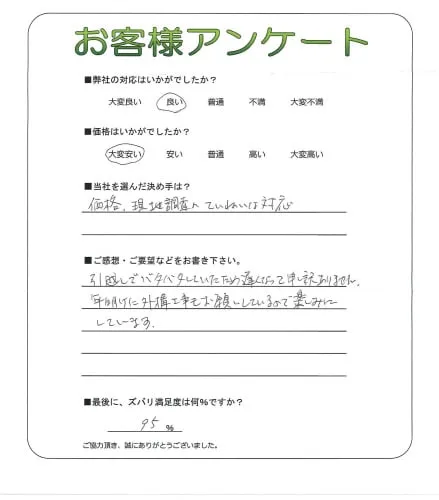 お客様アンケート
■弊社の対応はいかがでしたか？
大変良い　良い　普通　不満　大変不満
■価格はいかがでしたか？
大変安い　安い　普通　高い　大変高い
■当社を選んだ決め手は？
価格、現地調査、ていねいな対応
■ご感想・ご要望などをお書き下さい。
引越しでバタバタしていたため遅くなって申し訳ありません。
年明けに外構工事もお願いしているので楽しみに
しています。
■最後に、ズバリ満足度は何％ですか？
95 ％
ご協力頂き、誠にありがとうございました。